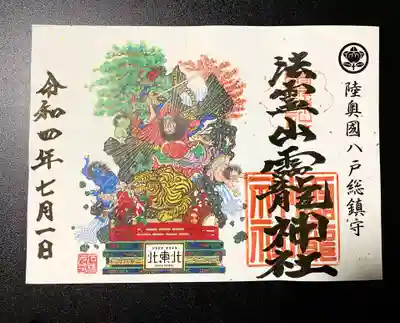 陸奥國八戸総鎮守
法霊山龗神社
北東北
令和四年七月一日